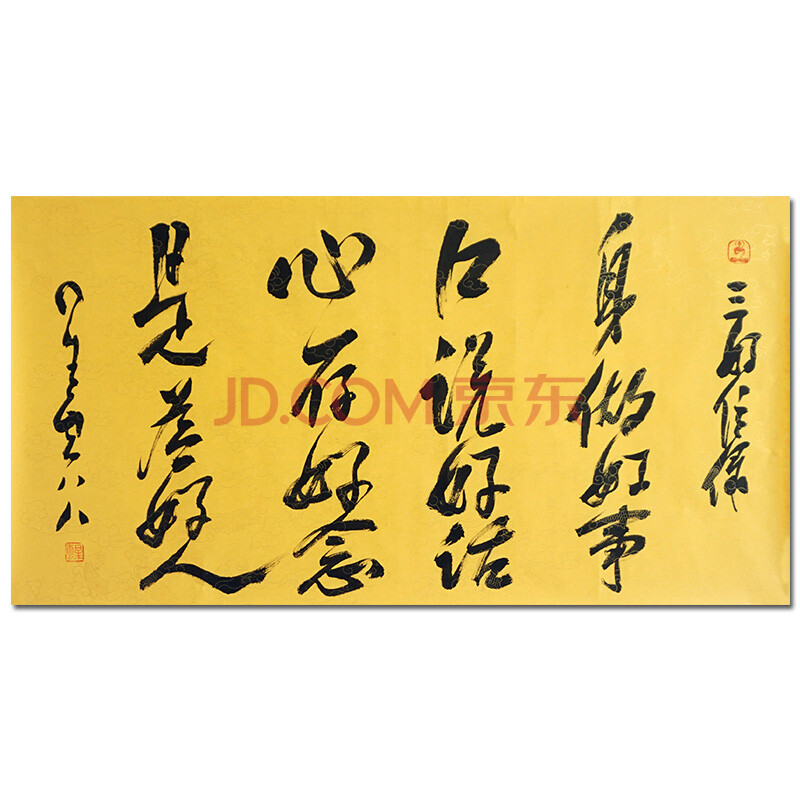 三好
身做好事
口说好话
心存好念
是為好人
星雲八八
JD.COM京东